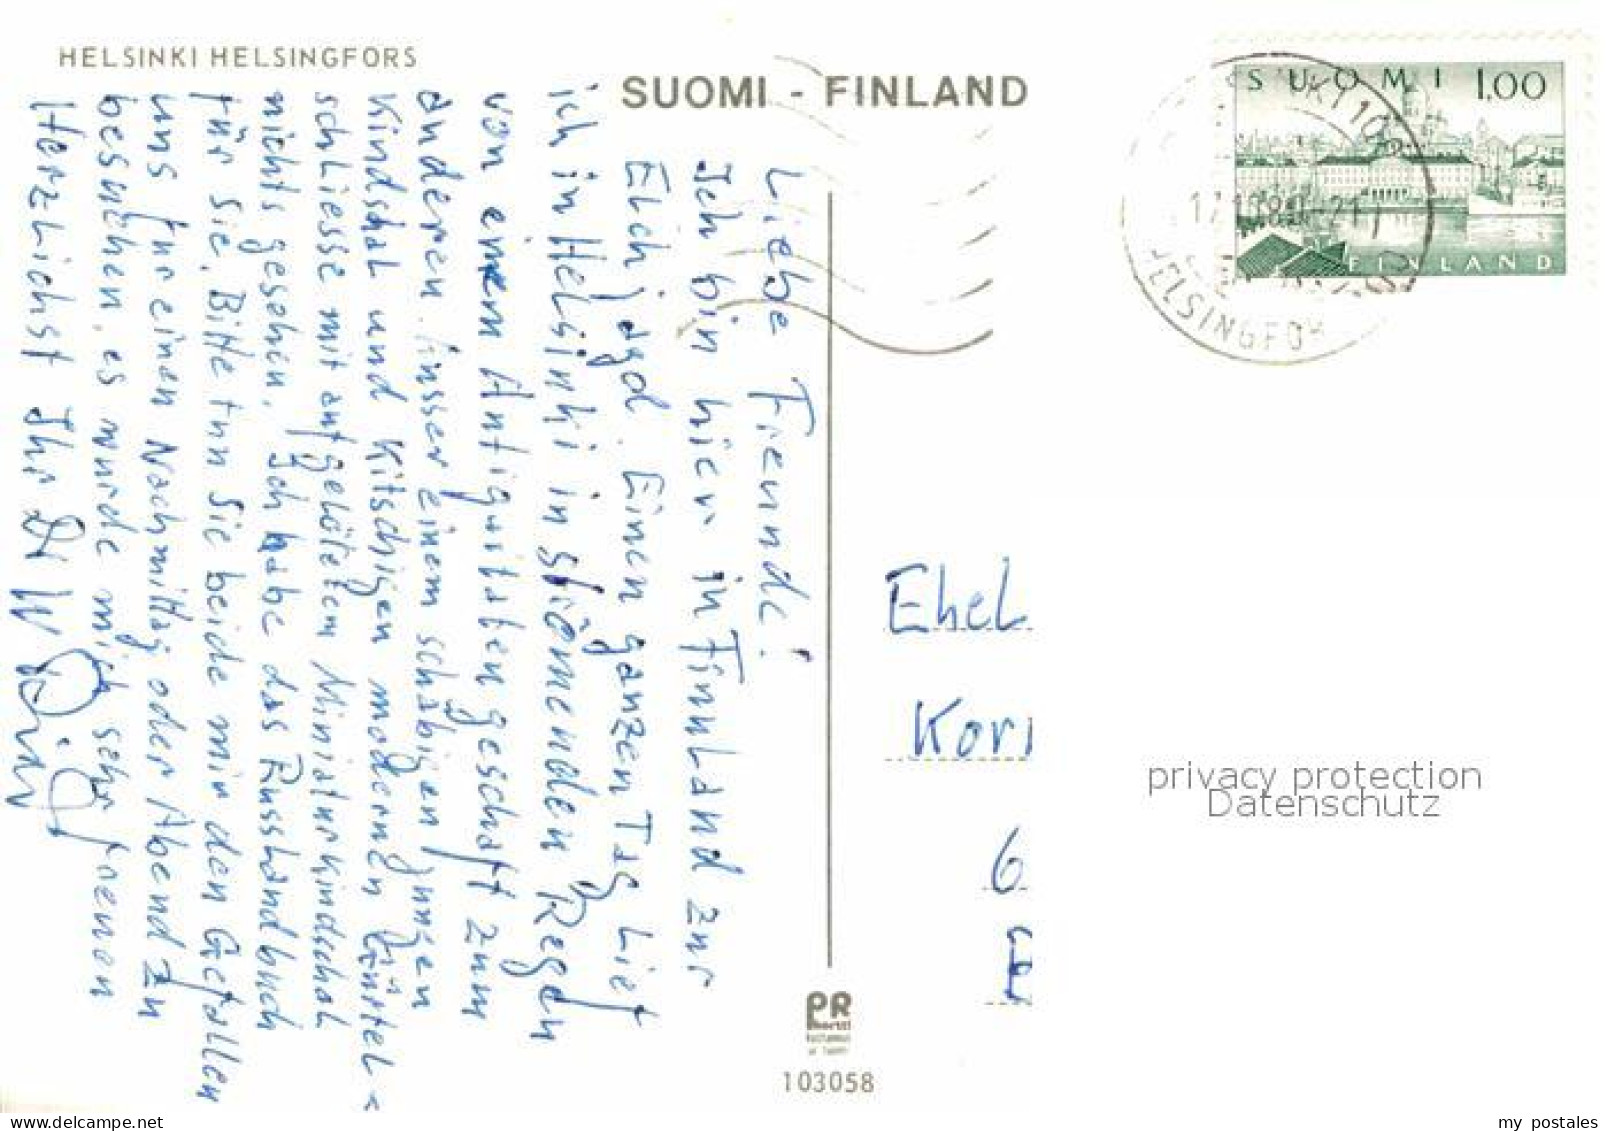 HELSINKI HELSINGFORS
SUOMI - FINLAND
Liebe Freunde!
Ich bin hier in Finnland zur
Elchjagd. Einen ganzen Tag lief
ich in Helsinki in strömenden Regen
von einem Antiquitätengeschäft zum
anderen. Ausser einem schäbigen jungen
Kindschal und kitschigen modernen Gürtel-
schliesse mit aufgelötetem Miniaturkindschal
nichts gesehen. Ich habe das Russlandbuch
für Sie. Bitte tun Sie beide mir den Gefallen
uns für einen Nachmittag oder Abend zu
besuchen, es würde mich sehr freuen
Herzlichst Ihr
SUOMI 1,00
FINLAND
HELSINGFOR
Ehel
Kori
6
PR
103058
privacy protection
Datenschutz
my postales